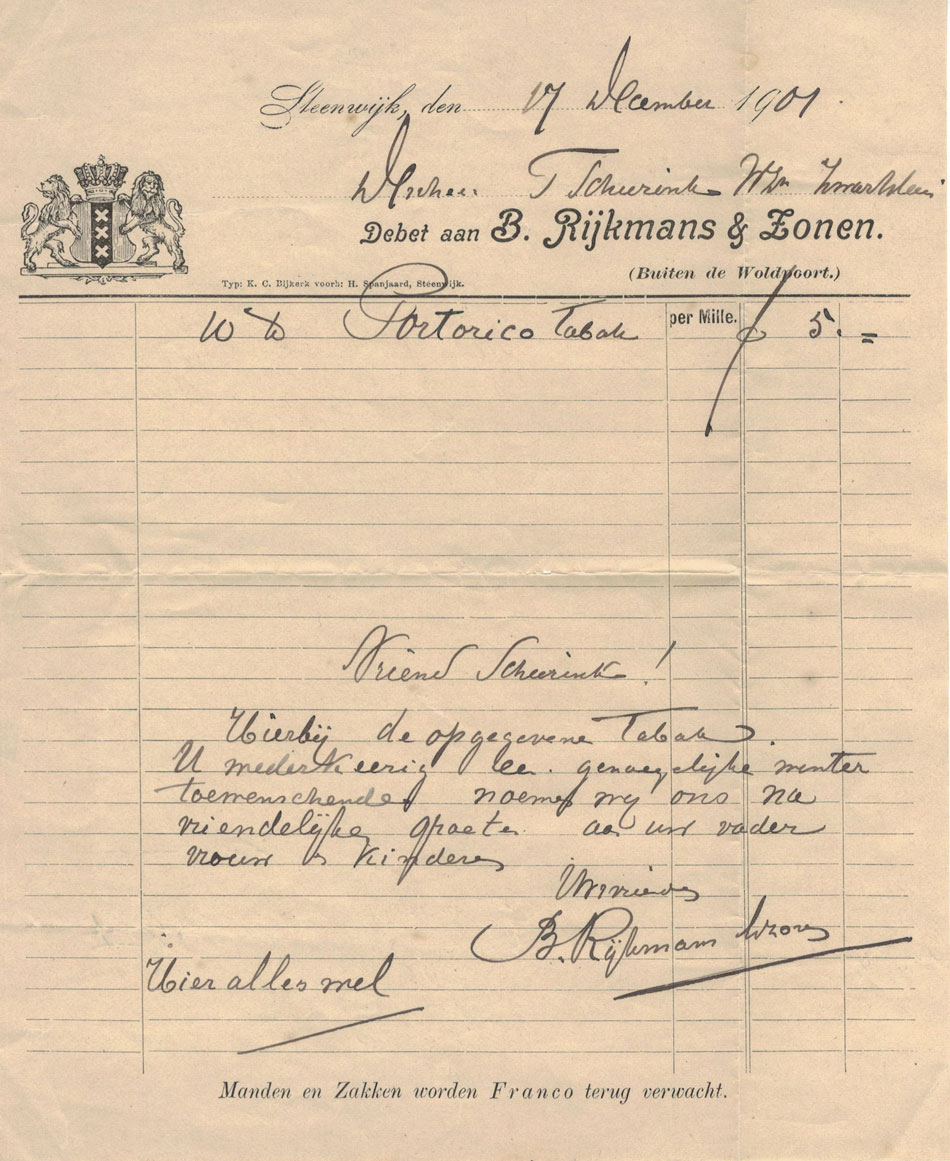 Steenwijk, den 17 December 1901
De Heer T Scheerink
Debet aan B. Rijkmans & Zonen.
(Buiten de Woldpoort.)
Typ: K. C. Bijkerk voorh: H. Spanjaard, Steenwijk.
10 Portorico Tabak per Mille. f 5.=
Vriend Scheerink!
Hierbij de opgegevene Tabak.
U wederkeerig een genoegelijke winter
toewenschende noemen wij ons na
vriendelijke groeten aan uw vader
vrouw & kinderen
Uw vrienden
B. Rijkmans & Zonen
Hier alles wel
Manden en Zakken worden Franco terug verwacht.